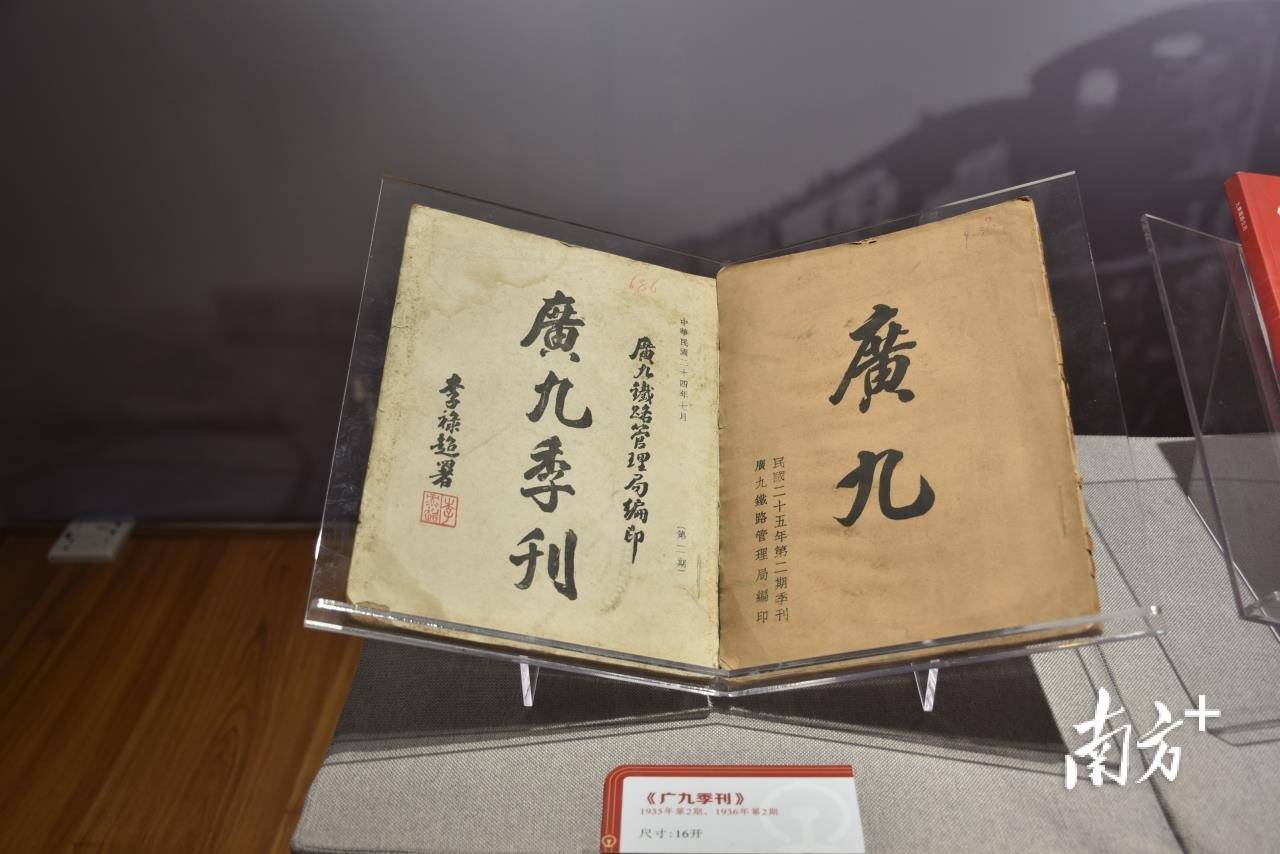 686
中華民國二十四年七月
廣九鐵路管理局編印
〔第二期〕
廣九季刊
李祿超署
廣九
民國二十五年第二期季刊
廣九鐵路管理局編印
南方+
《广九季刊》
1935年第2期、1936年第2期
尺寸:16开